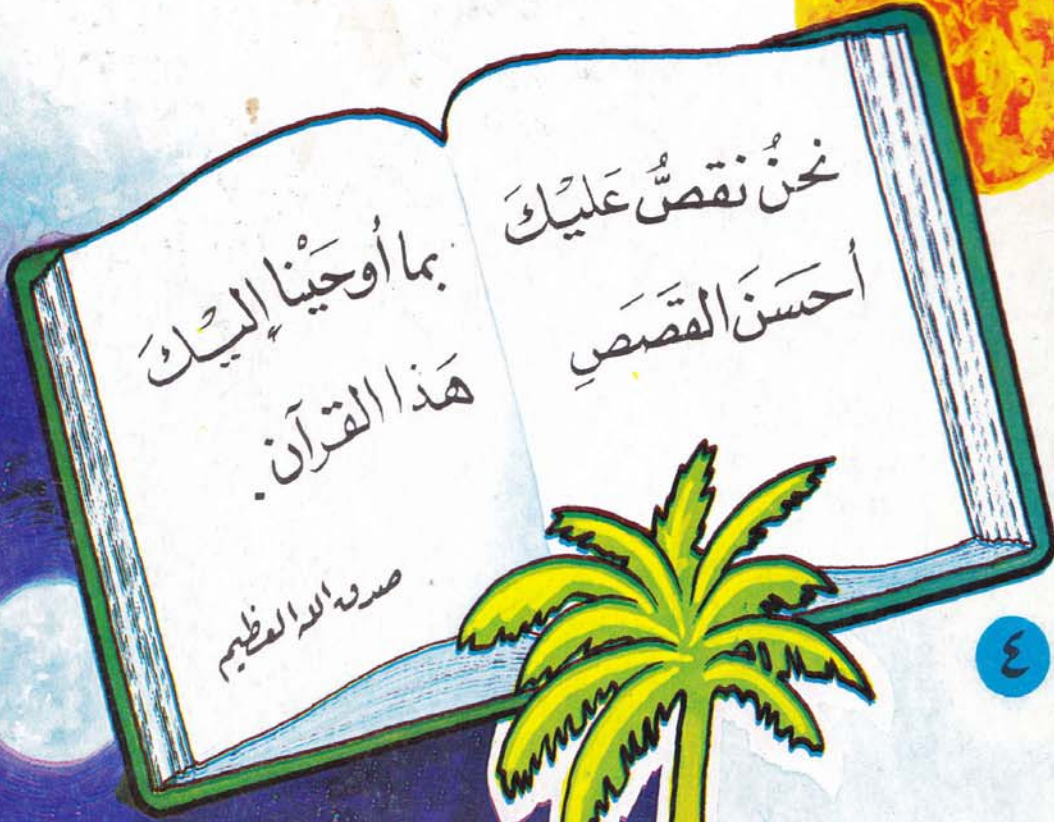 نحنُ نقصُّ عَليْكَ
أحسَنَ القَصَصِ
بما أوحَيْنا إليْكَ
هَذا القرآن.
صدق الله العظيم
٤